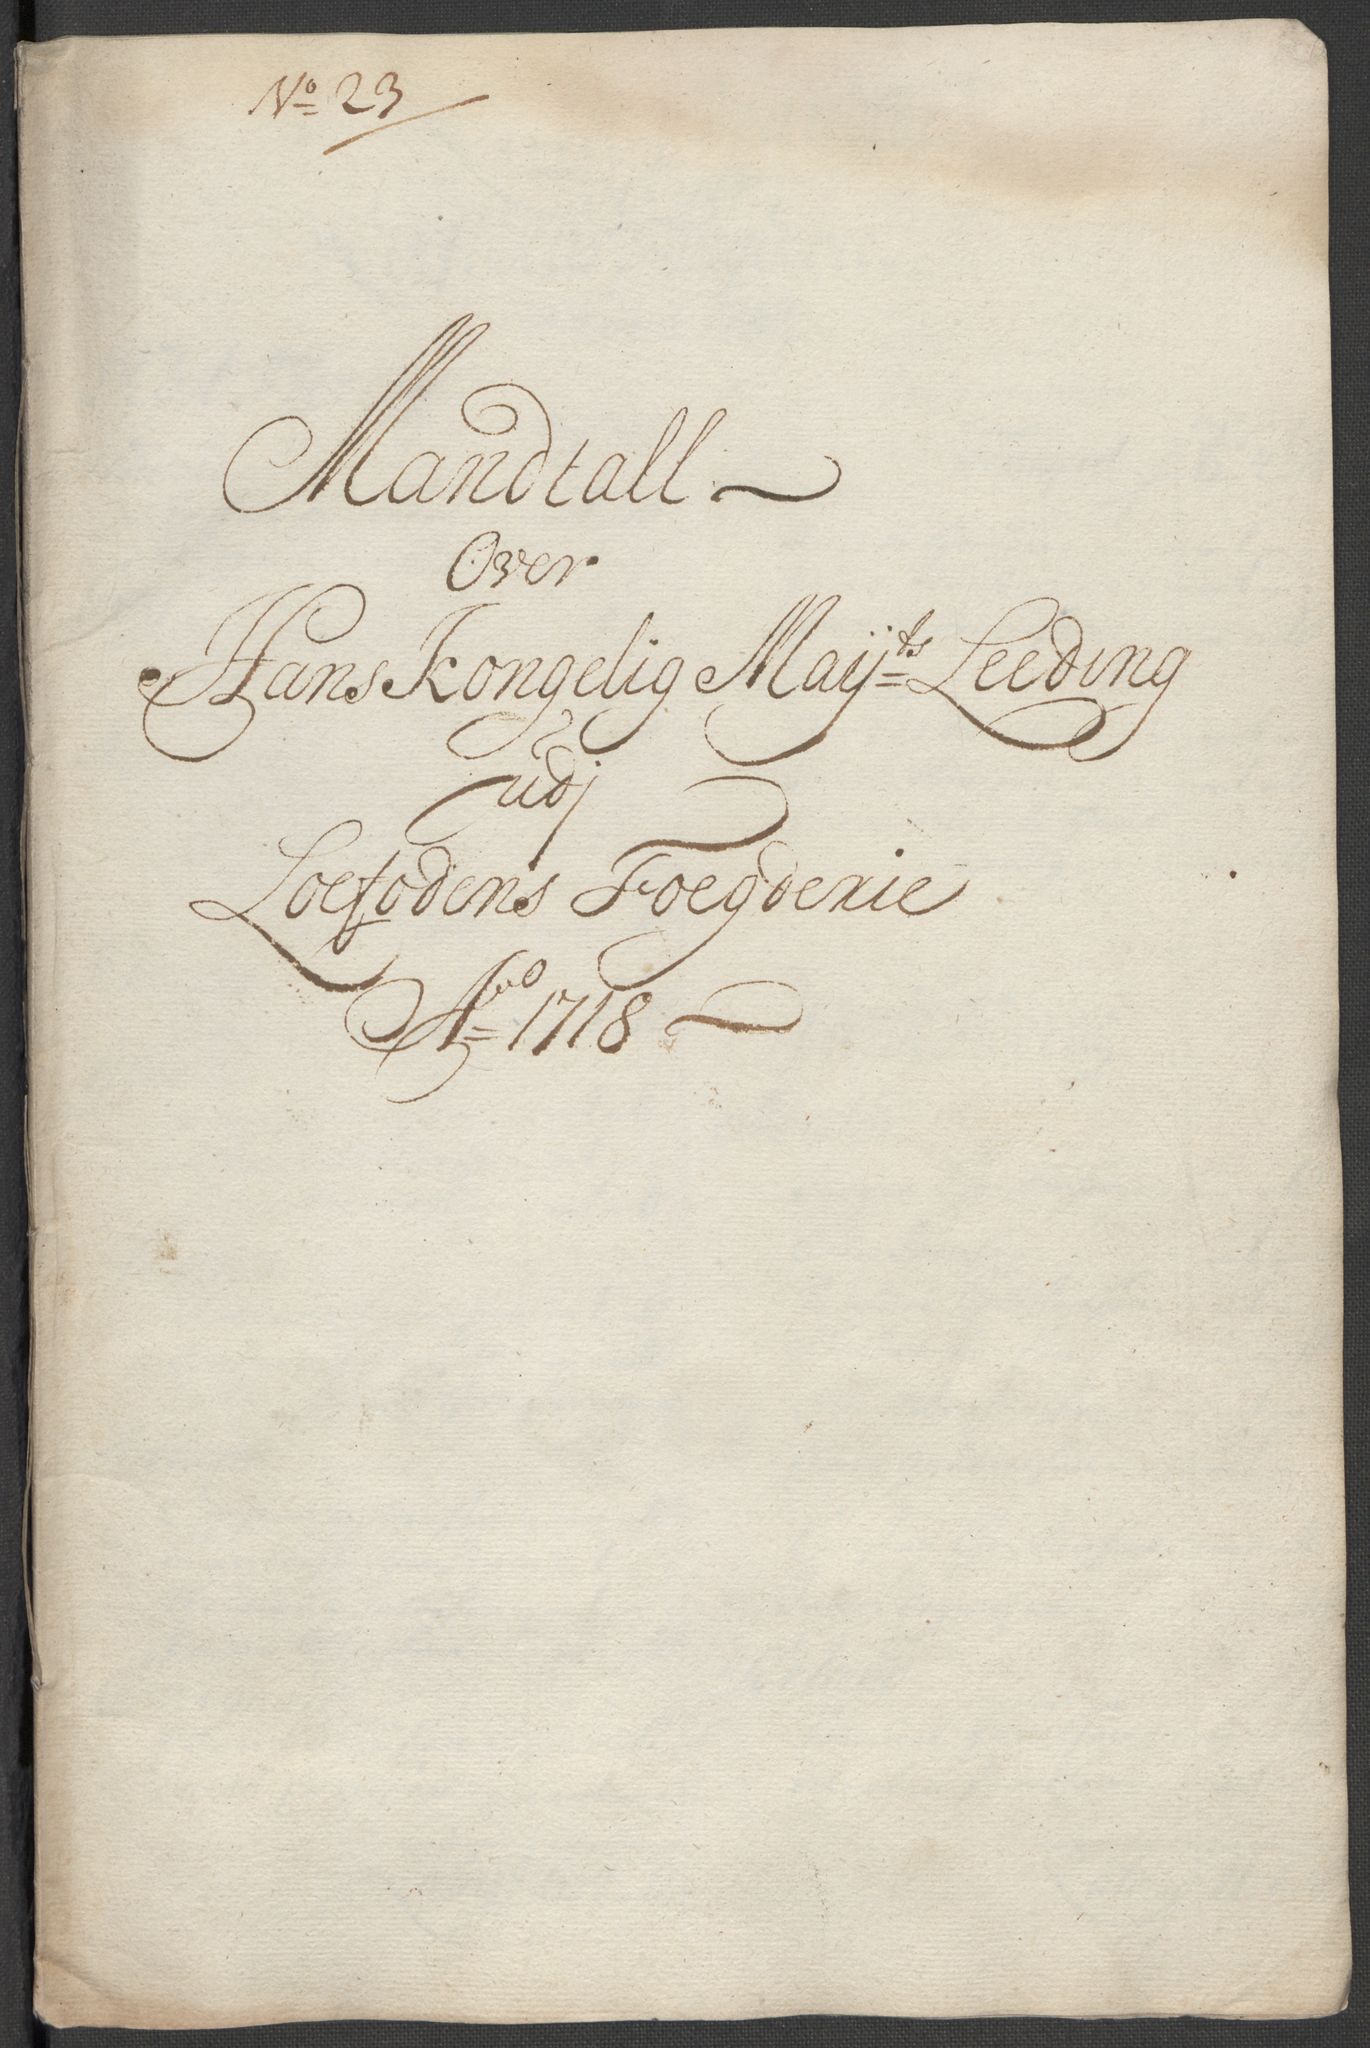 No 23
Mandtall
Over
Hans Kongelig Mayjts Leeding
udj
Loefodens Foegderie
Ao 1718